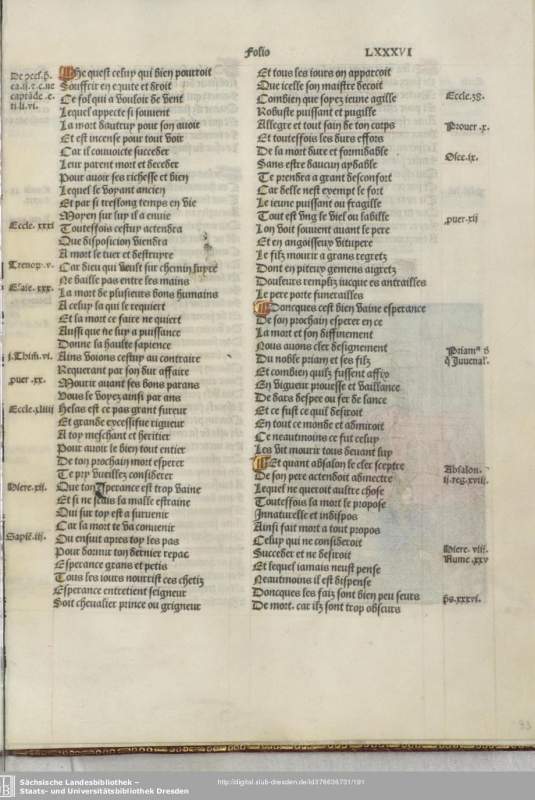 Folio LXXXVI
De ꝯces. p̄.
ca. ii. ⁊ c. ne
captãde . e.
ti. li. vi.
Eccle. xxxi
Treno. v.
Esaie. xxx.
j. Thim. vi.
puer. xx.
Eccle. xliiii
Hiere. xii.
Sapiē. iii.
He quest celuy qui bien pourroit
Souffrir en equite et droit
Ce fol qui a vouloir de vent
Lequel appecte si souuent
La mort dautruy pour son auoir
Et est incense pour tout voir
Car il conuoicte succeder
Leur parent mort et deceder
Pour auoir ses richesse et bien
Lequel le voyant ancien
Et par si treslong temps en vie
Moyen sur luy il a enuie
Toutesfois cestuy actendra
Que disposicion viendra
A mort le tuer et destruyre
Car dieu qui veult sur chemin luyre
Ne baille pas entre les mains
La mort de plusieurs bons humains
A celuy la qui le requiert
Et la mort ce faire ne quiert
Aussi que ne luy a puissance
Donne la haulte sapience
Ains voions cestuy au contraire
Requerant par son dur affaire
Mourir auant ses bons parans
Vous le voyez ainsi par ans
Helas est ce pas grant fureur
Et grande excessifue rigueur
A toy meschant et heritier
Pour auoir le bien tout entier
De ton prochain mort esperer
Te pry vueillez considerer
Que ton esperance est trop vaine
Et si ne scais la malle estraine
Qui sur toy est a suruenir
Car la mort te va conuenir
Ou ensuit apres toy les pas
Pour donnir ton dernier repac
Esperance grans et petis
Tous les iours nourrist ces chetiz
Esperance entretient seigneur
Soit cheualier prince ou grigneur
Et tous les iours on apparcoit
Que icelle son maistre decoit
Combien que soyez ieune agille
Robuste puissant et pugille
Allegre et tout sain de ton corps
Et toutesfois les durs effors
De la mort dure et formidable
Sans estre daucun aydable
Te prendra a grant desconfort
Car delle nest exempt le fort
Le ieune puissant ou fragille
Tout est vng le viel ou labille
Lon voit souuent auant le pere
Et en angoisseux vitupere
Le filz mourir a grans regretz
Dont en piteux gemens aigretz
Douleurs rempliz iucques es antrailles
Le pere porte funerailles
Doncques cest bien vaine esperance
De son prochain esperer en ce
La mort et son diffinement
Nous auons cler designement
Du noble priam et ses filz
Et combien quilz fussent affix
En vigueur prouesse et vaillance
De dars despee ou fer de lance
Et ce fust ce quil desiroit
En tout ce monde et admiroit
Ce neautmoins ce fut celuy
Les vit mourir tous deuant luy
Et quant absalon le cler sceptre
De son pere actendoit admectre
Lequel ne queroit aultre chose
Toutesfois la mort le propose
Innaturelle et indispos
Ainsi fait mort a tout propos
Celuy qui ne consideroit
Succeder et ne desiroit
Et lequel iamais neust pense
Neautmoins il est dispense
Doncques les faiz sont bien peu seurs
De mort. car ilz sont trop obscurs
Eccle. 38.
Prouer. x.
Osee. ix.
puer. xii
Priamꝰ &
Juuenal.
Absalon.
ii. reg. xviii.
Hiere. viii.
Nume. xxv
p̄s. xxxvi.
93
Sächsische Landesbibliothek –
Staats- und Universitätsbibliothek Dresden
http://digital.slub-dresden.de/id378636731/191